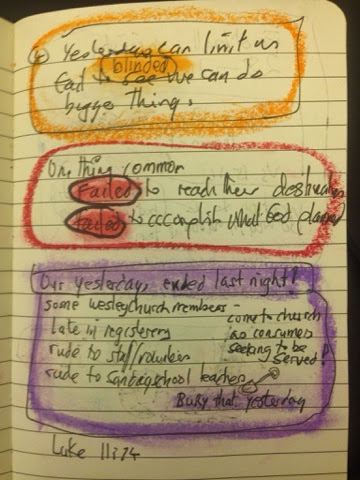 Yesterday can limit us
blinded
God to see we can do
bigger things.
One thing common
Failed to reach their destination
Failed to accomplish what God planned
Our yesterday, ended last night!
some wesley church members -
late in registering
rude to staff/volunteer
rude to sunday school teacher
come to church
as consumers
seeking to be
served!
Bury that yesterday
Luke 11:24